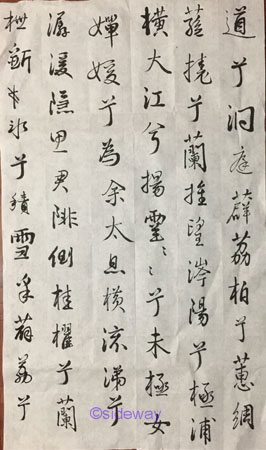 道兮洞庭薜荔柏兮蕙綢
蓀橈兮蘭旌望涔陽兮極浦
橫大江兮揚靈〻〻兮未極女
嬋媛兮為余太息橫流涕兮
潺湲隱思君陫側桂櫂兮蘭
枻斲冰兮積雪采薜荔兮
©sideway